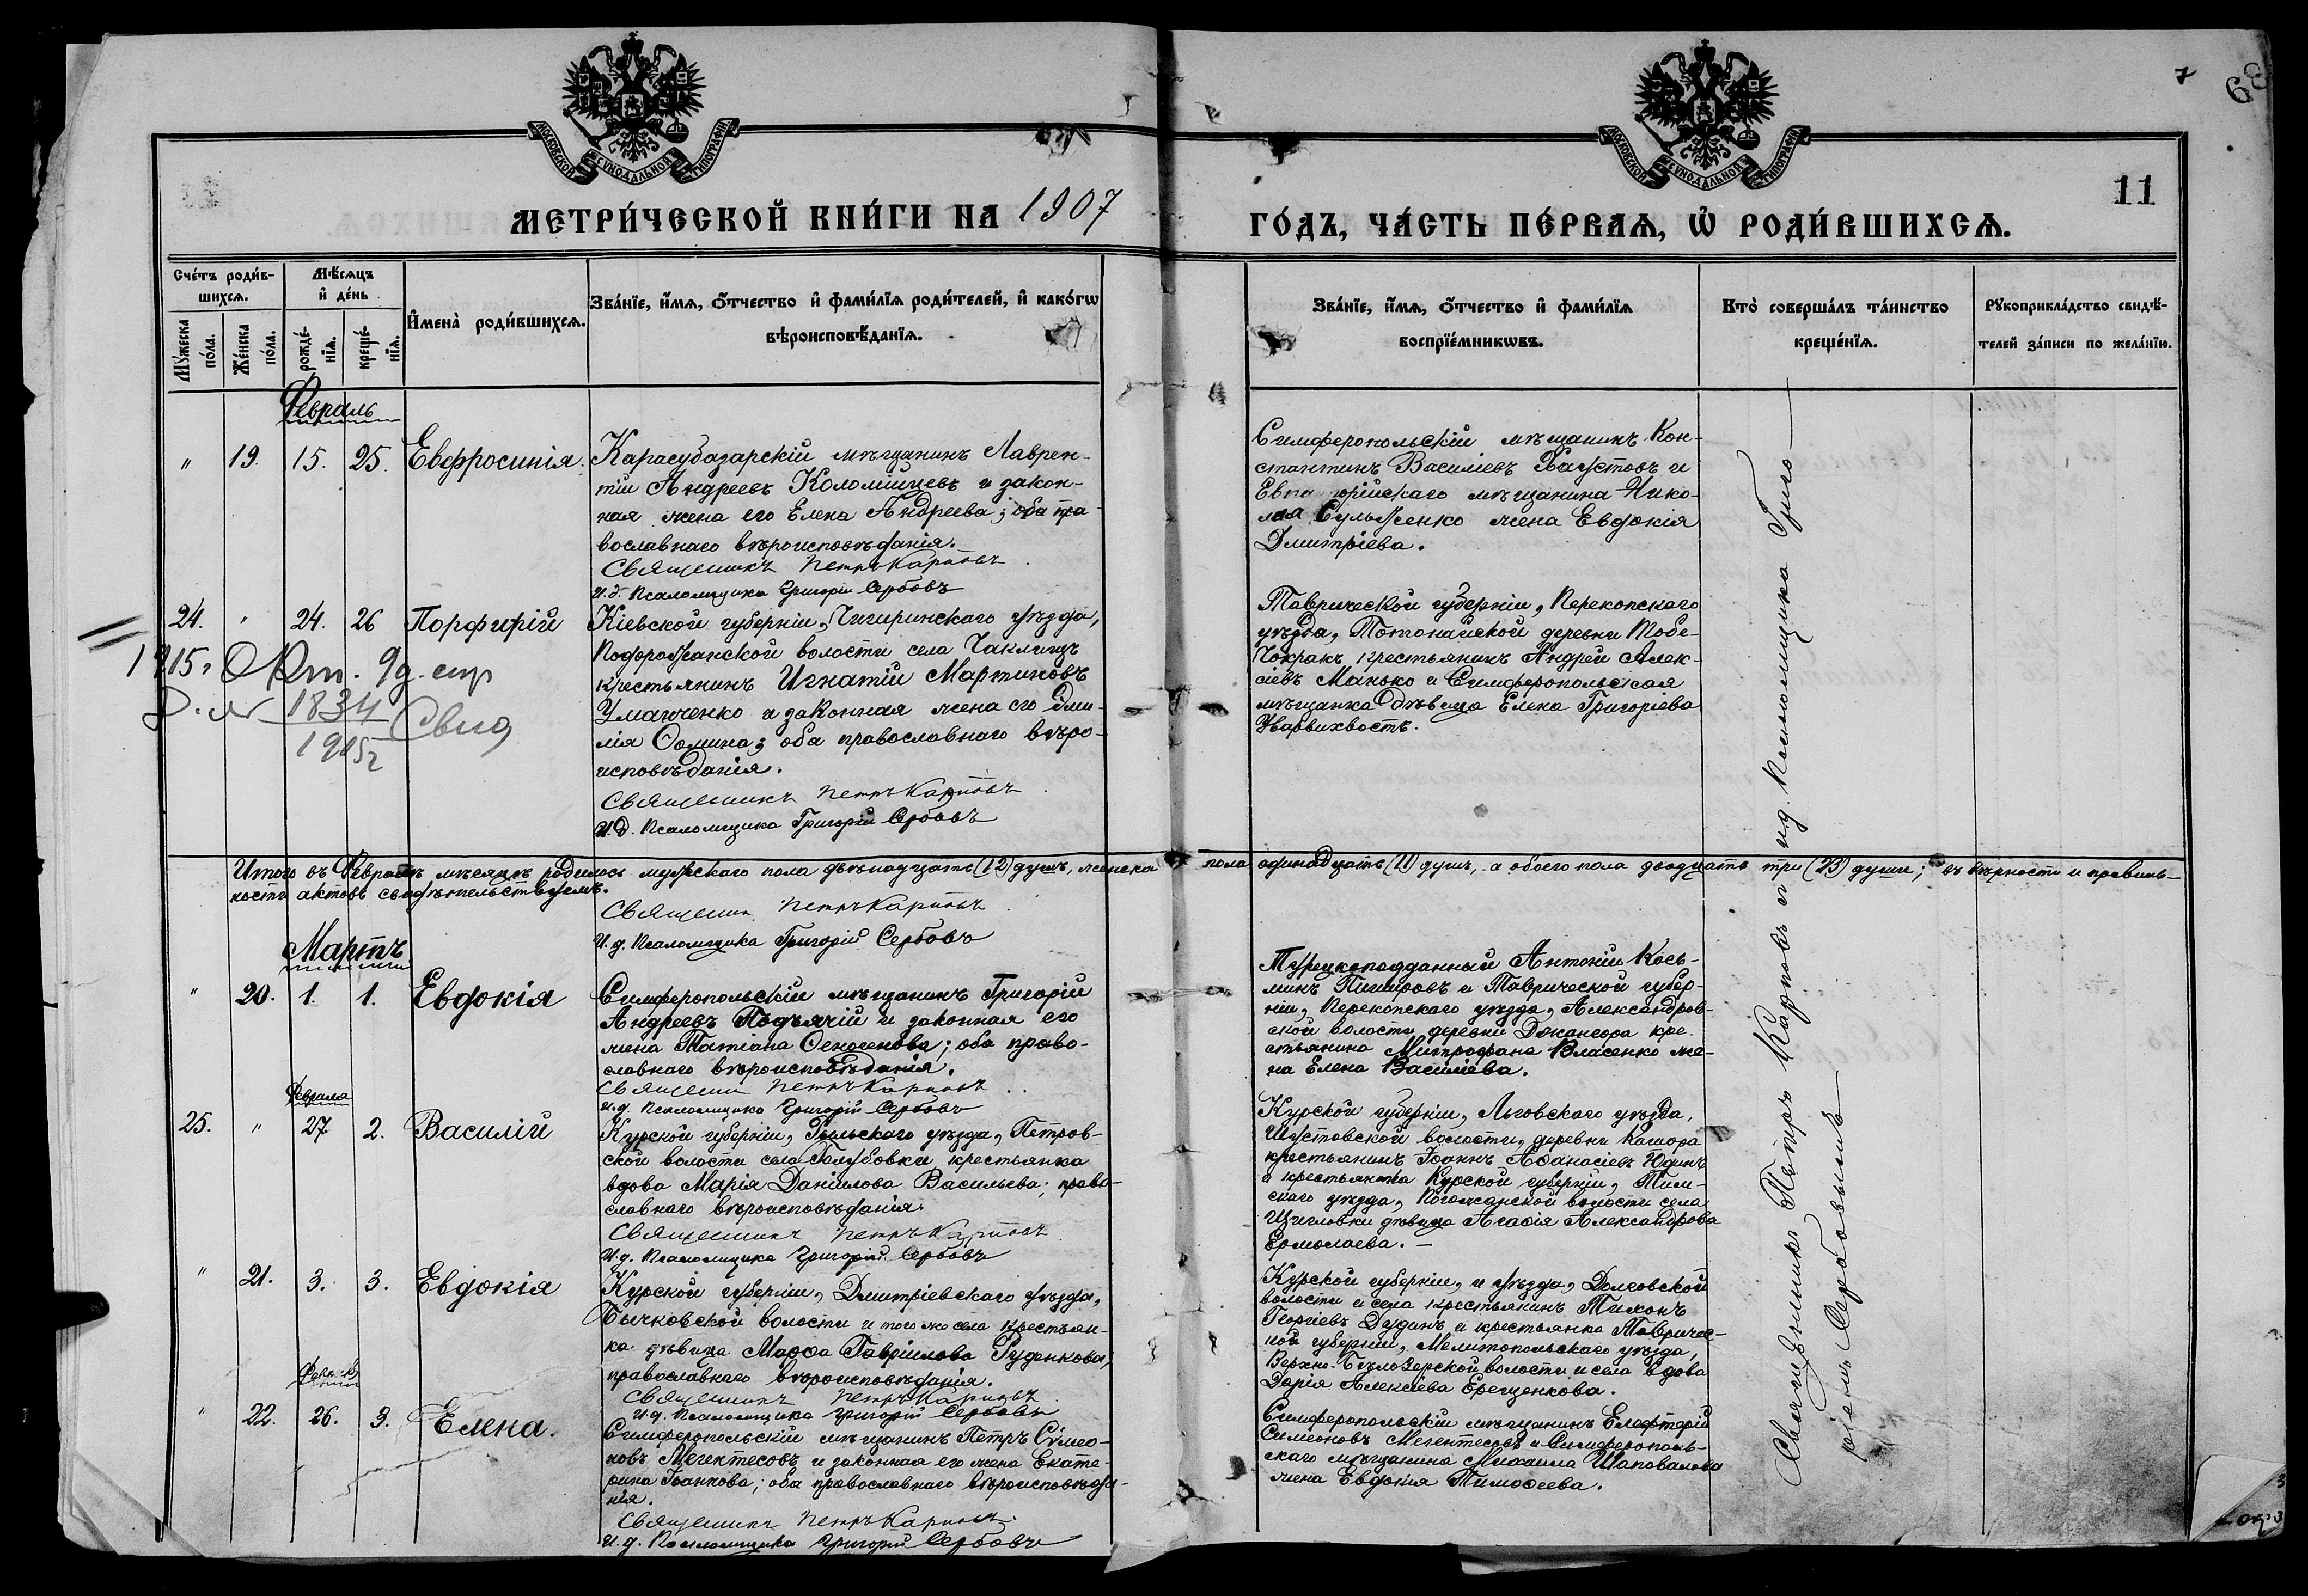 МОСКОВСКОЙ СѴНОДАЛЬНОЙ ТИПОГРАФІИ
МОСКОВСКОЙ СѴНОДАЛЬНОЙ ТИПОГРАФІИ
68
11
МЕТРИ́ЧЕСКОЙ КНИ́ГИ НА 1907
ГО́ДЪ, ЧА́СТЬ ПЕ́РВАѦ, Ѡ҆ РОДИ́ВШИХСѦ.
Сче́тъ роди́в-
шихсѧ.
Мѣ́сѧцъ
и҆ де́нь
Мꙋ́жеска
по́ла.
Же́нска
по́ла.
рожде́-
нїѧ.
креще́-
нїѧ.
И҆мена̀ роди́вшихсѧ.
Зва́нїе, и҆́мѧ, ѻ҆́тчество и҆ фами́лїѧ роди́телей, и҆ како́гѡ
вѣроисповѣ́данїѧ.
Зва́нїе, и҆́мѧ, ѻ҆́тчество и҆ фами́лїѧ
воспрїе́мникѡвъ.
Кто̀ соверша́лъ та́инство
креще́нїѧ.
Рꙋкоприкла́дство свидѣ́-
телей за́писи по жела́нїю.
Февраль
" 19. 15. 25. Евфросинія.
Карасубазарскій мѣщанинъ Лаврен-
тій Андреевъ Коломійцевъ и закон-
ная жена его Елена Андреева; оба пра-
вославнаго вѣроисповѣданія.
Священникъ Петръ Карповъ
И.д. Псаломщика Григорій Сербовъ
Симферопольскій мѣщанинъ Кон-
стантинъ Василіевъ Хаустовъ и
мѣщанина Нико-
лая Сульженко жена Евдокія
Дмитріева.
24. " 24. 26 Порфирій
Кіевской губерніи, Чигиринскаго уѣзда,
волости села
крестьянинъ Игнатій Мартиновъ
Уманченко и законная жена его
Ѳомина; оба православнаго вѣро-
исповѣданія.
Священникъ Петръ Карповъ
И.д. Псаломщика Григорій Сербовъ
Таврической губерніи, Перекопскаго
уѣзда, деревни Тобе-
Чокракъ крестьянинъ Андрей Алек-
сіевъ Манько и Симферопольская
мѣщанка дѣвица Елена Григоріева
1915 Окт. 9д.
1834
1915г Свид
Итого въ Февралѣ мѣсяцѣ родилось мужескаго пола двѣнадцать (12) душъ, женска
пола одинадцать (11) душъ, а обоего пола двадцать три (23) души; въ вѣрности и правиль-
ности актовъ свидѣтельствуемъ.
Священникъ Петръ Карповъ
И.д. Псаломщика Григорій Сербовъ
Мартъ
" 20. 1. 1. Евдокія
Симферопольскій мѣщанинъ Григорій
Андреевъ Подъячій и законная его
жена Татіана; оба право-
славнаго вѣроисповѣданія.
Священникъ Петръ Карповъ
И.д. Псаломщика Григорій Сербовъ
Турецкоподданный Антоній Кось-
минъ и Таврической губер-
ніи, Перекопскаго уѣзда, Александров-
ской волости деревни Джанкоя кре-
стьянина Митрофана Власенко же-
на Елена Василіева.
Февраля
25. " 27. 2. Василій
Курской губерніи, Рыльскаго уѣзда, Петров-
ской волости села Голубовки крестьянка
вдова Марія Даніилова Васильева; право-
славнаго вѣроисповѣданія.
Священникъ Петръ Карповъ
И.д. Псаломщика Григорій Сербовъ
Курской губерніи, Льговскаго уѣзда,
Шустовской волости, деревни
крестьянинъ Іоаннъ Аѳанасіевъ Юдинъ
и крестьянка Курской губерніи, Тим-
скаго уѣзда, волости села
дѣвица Агаѳія Александрова
Ермолаева. —
" 21. 3. 3. Евдокія
Курской губерніи, Дмитріевскаго уѣзда,
Бычковской волости и того же села крестьян-
ка дѣвица Марѳа Гавріилова Руденкова,
православнаго вѣроисповѣданія.
Священникъ Петръ Карповъ
И.д. Псаломщика Григорій Сербовъ
Курской губерніи, и уѣзда,
волости и села крестьянинъ Тихонъ
Георгіевъ Дудинъ и крестьянка Тавричес-
кой губерніи, Мелитопольскаго уѣзда,
Верхне-Бѣлозерской волости и села вдова
Дарія Алексіева Ерещенкова.
" 22. 26. 3. Елена.
Симферопольскій мѣщанинъ Петръ Сѵмео-
новъ Мегентесовъ и законная его жена Екате-
рина Іоаннова; оба православнаго вѣроисповѣда-
нія.
Священникъ Петръ Карповъ
И.д. Псаломщика Григорій Сербовъ
Симферопольскій мѣщанинъ Елефтерій
Симеоновъ Мегентесовъ и Симферополь-
скаго мѣщанина Михаила Шаповалова
жена Евдокія Тимоѳеева.
Священникъ Петръ Карповъ и и.д. Псаломщика Григо-
ріемъ Сербовымъ